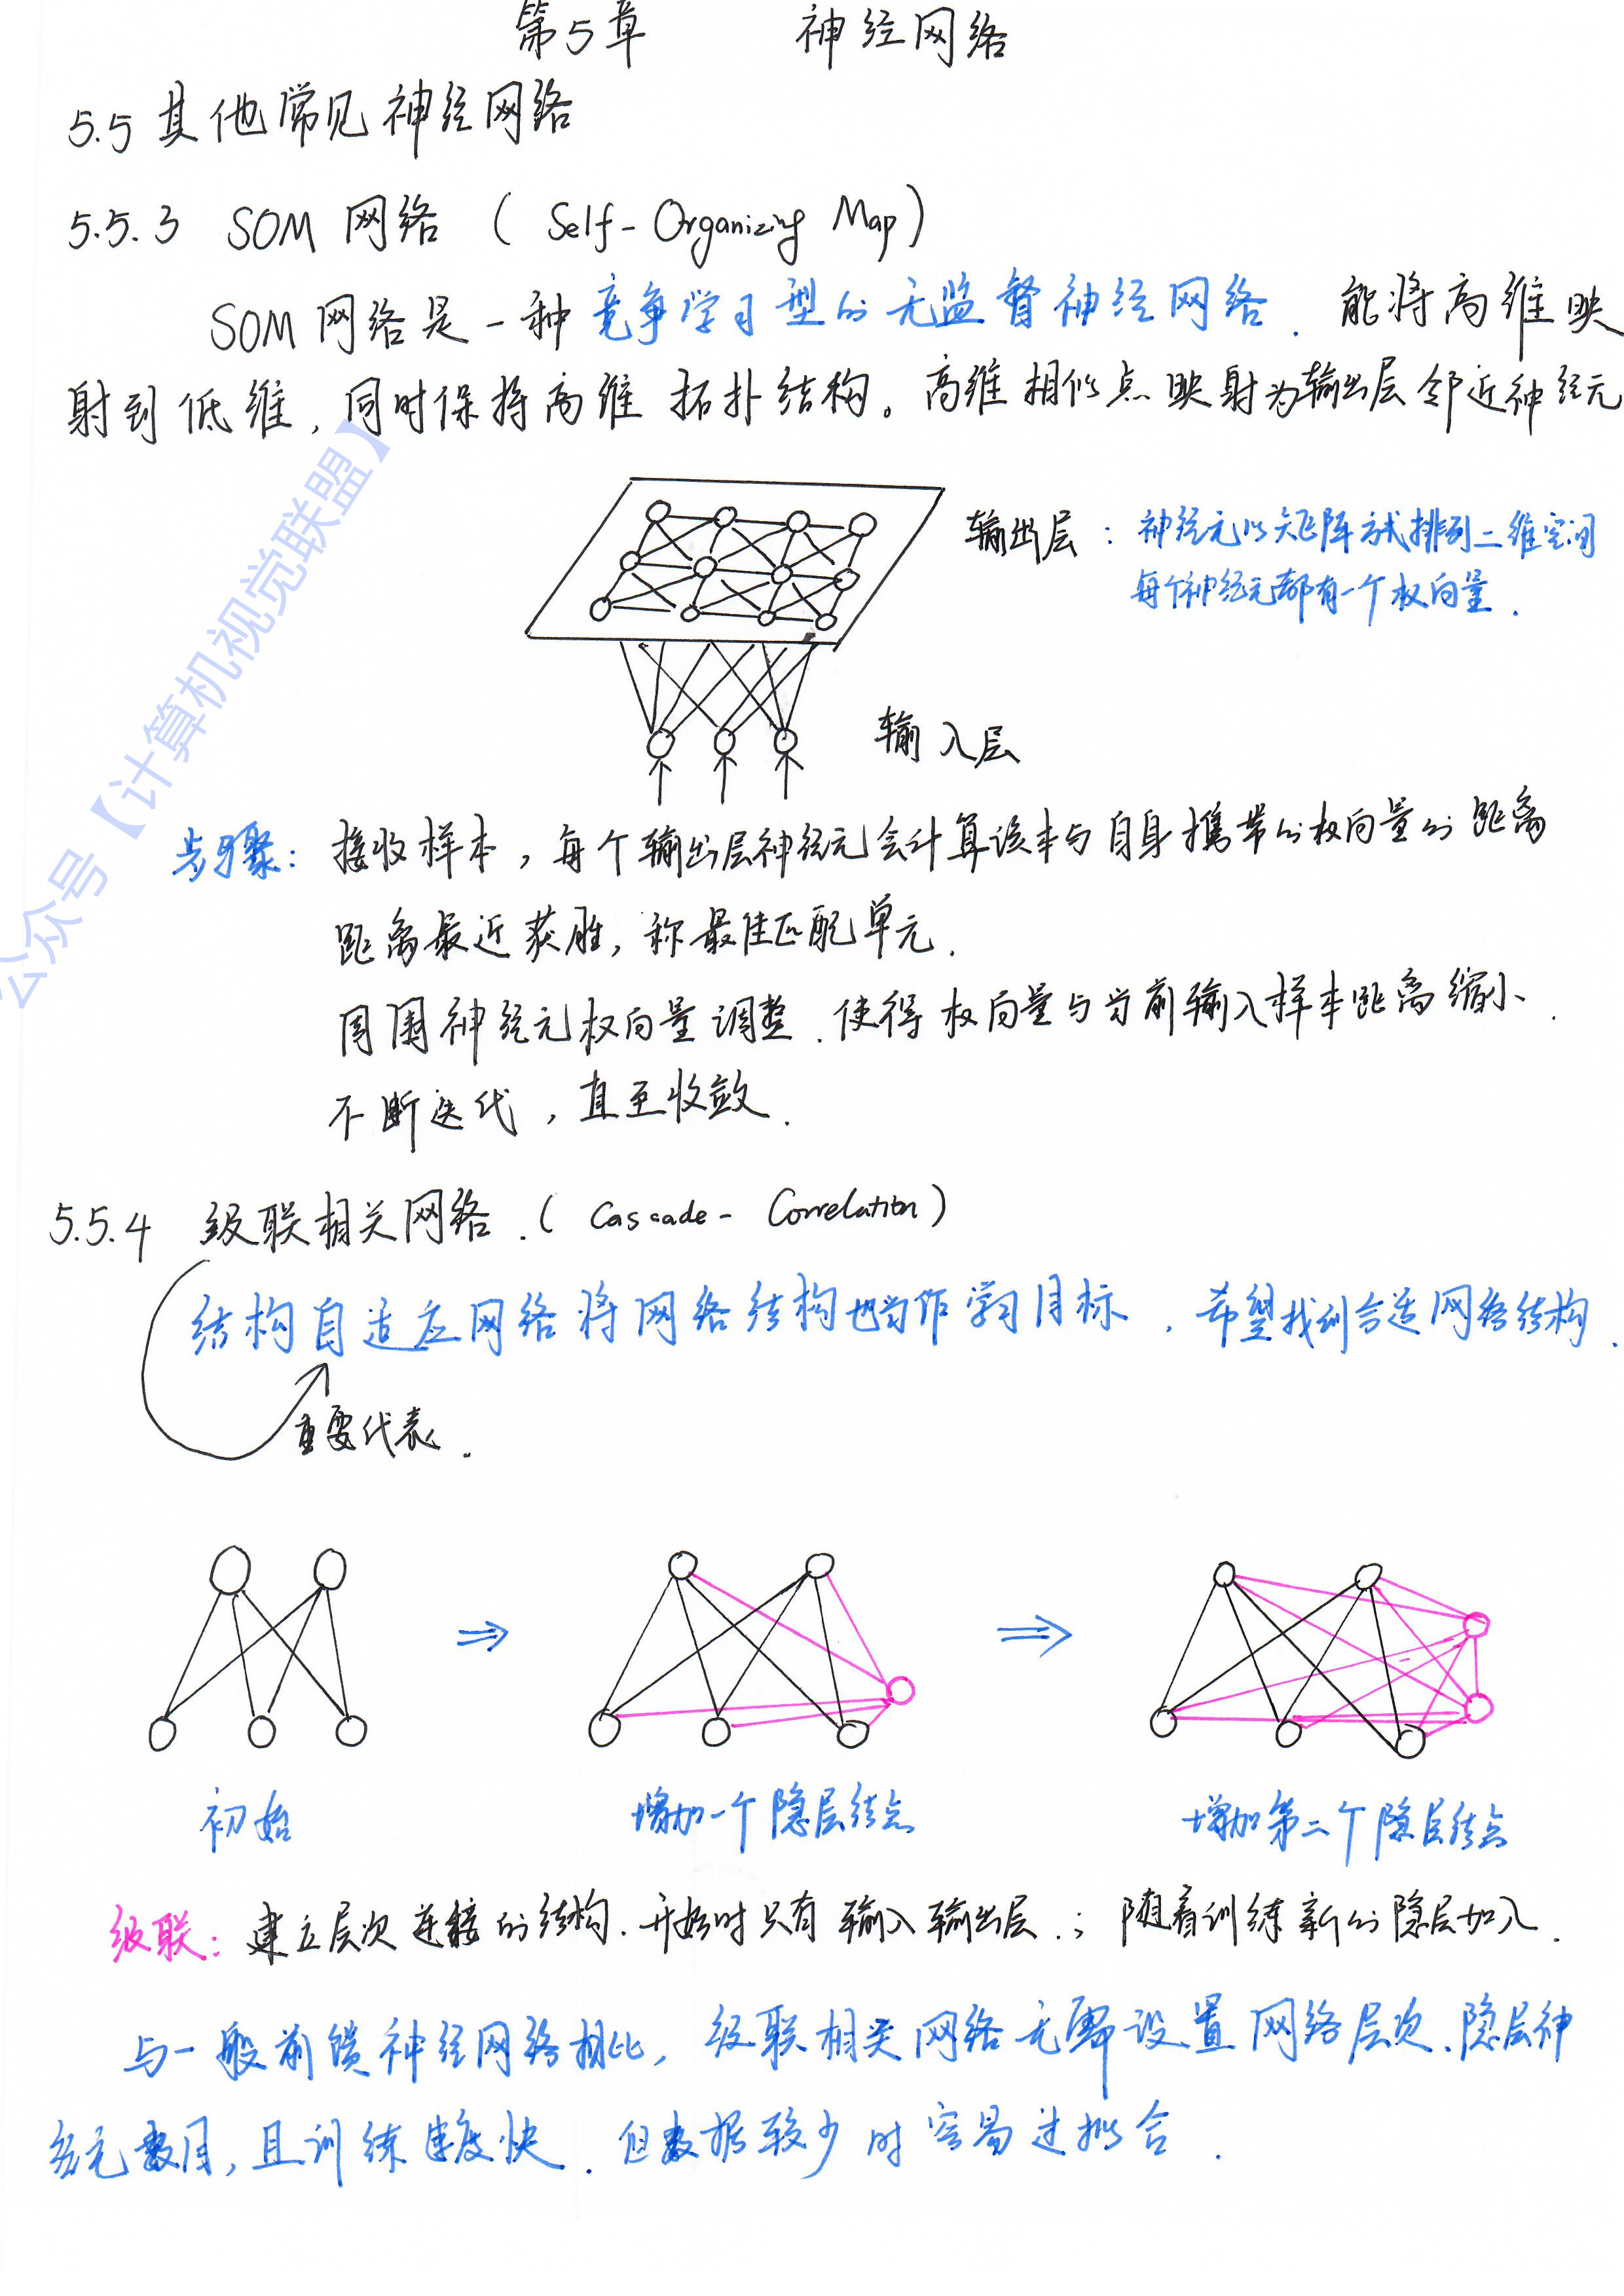 第5章 神经网络
5.5 其他常见神经网络
5.5.3 SOM 网络 ( Self-Organizing Map )
SOM 网络是一种竞争学习型的无监督神经网络. 能将高维映
射到低维, 同时保持高维拓扑结构。高维相似点映射为输出层邻近神经元
输出层: 神经元以矩阵方式排列二维空间
每个神经元都有一个权向量.
输入层
步骤: 接收样本, 每个输出层神经元会计算该本与自身携带的权向量的距离
距离最近获胜, 称最佳匹配单元.
周围神经元权向量调整. 使得权向量与当前输入样本距离缩小.
不断迭代, 直至收敛.
公众号【计算机视觉联盟】
5.5.4 级联相关网络.( Cascade-Correlation )
结构自适应网络将网络结构也当作学习目标, 希望找到合适网络结构.
重要代表.
⇒ ⇒
初始 增加一个隐层结点 增加第二个隐层结点
级联: 建立层次连接的结构. 开始时只有输入输出层.; 随着训练新的隐层加入.
与一般前馈神经网络相比, 级联相关网络无需设置网络层次、隐层神
经元数目, 且训练速度快. 但数据较少时容易过拟合.